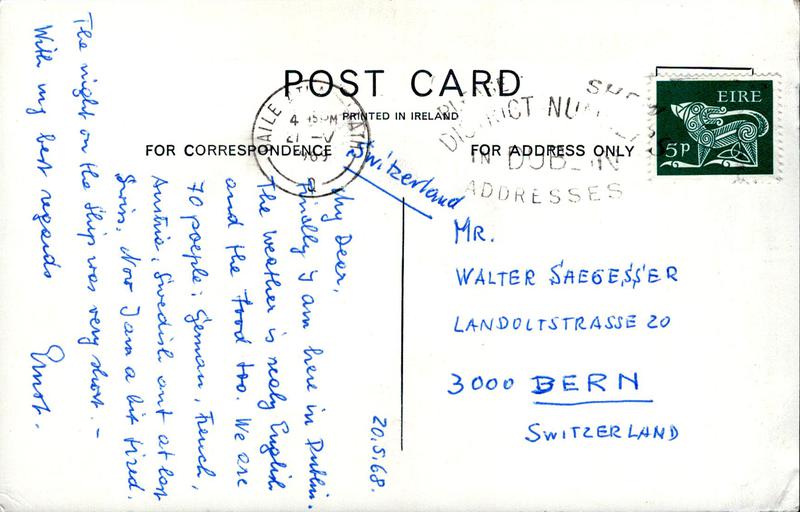 POST CARD
PRINTED IN IRELAND
FOR CORRESPONDENCE
FOR ADDRESS ONLY
EIRE
5P
DISTRICT NUMBERS
IN DUBLIN
ADDRESSES
Switzerland
20.5.68.
My Dear,
Findly I am here in Dublin.
The weather is realy English
and the food too. We are
70 poeple: German, French,
Austria, Swedish ant at last
Swiss. Now I am a bit tired.
The night on the ship was very short. –
With my best regards
Ernst.
Mr.
WALTER SAEGESSER
LANDOLTSTRASSE 20
3000 BERN
SWITZERLAND